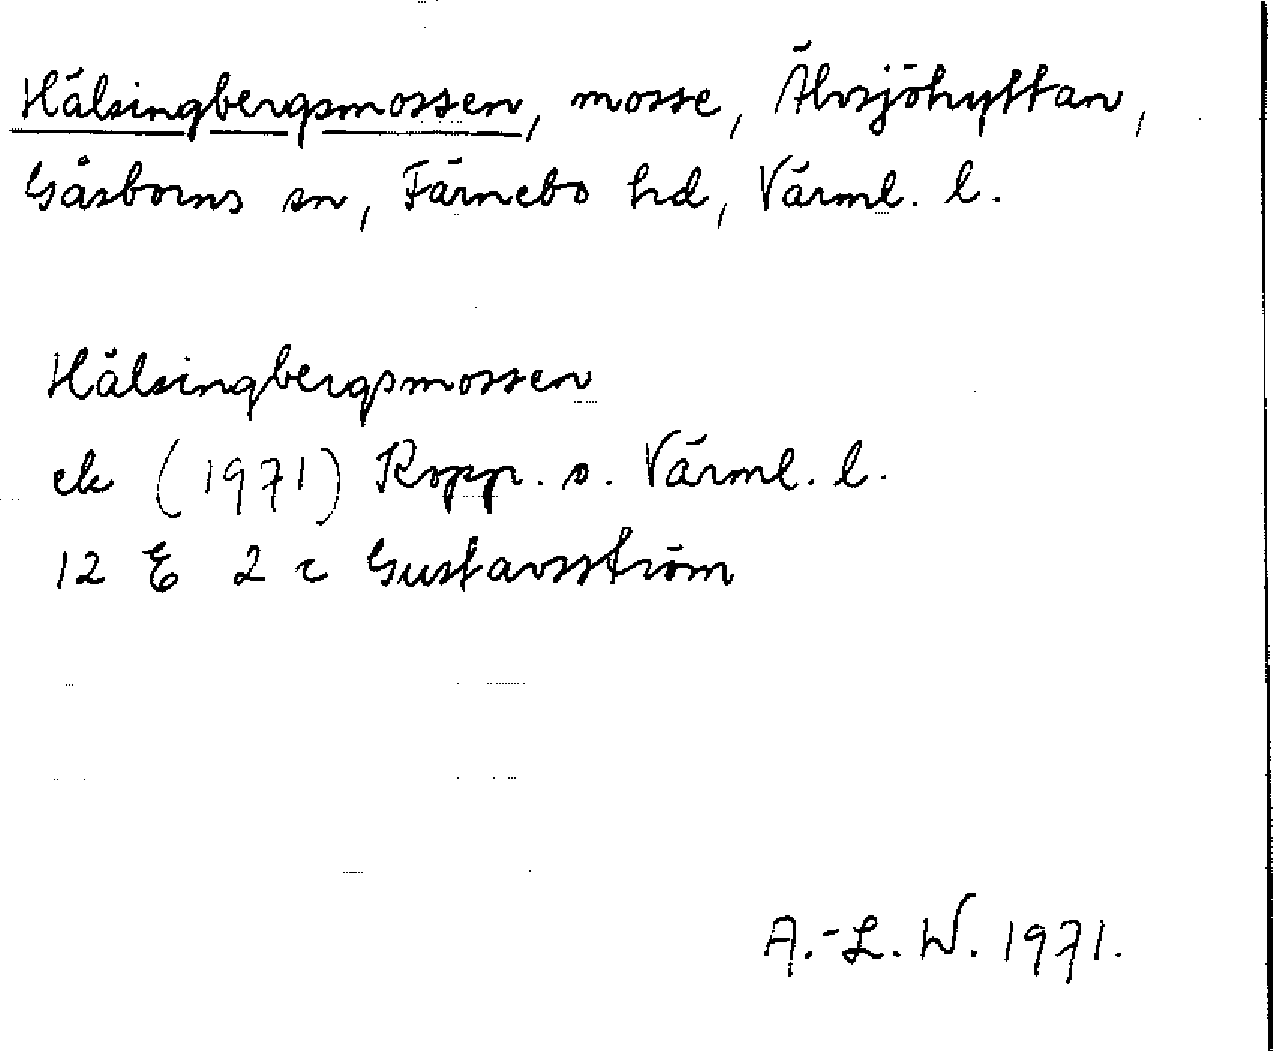 Hälsingbergsmossen, mosse, Älvsjöhyttan,
Gåsborns sn, Färnebo hd, Värml. l.
Hälsingbergsmossen
ek (1971) Kopp. o. Värml. l.
12 E 2 c Gustavsström
A.-L. W. 1971.